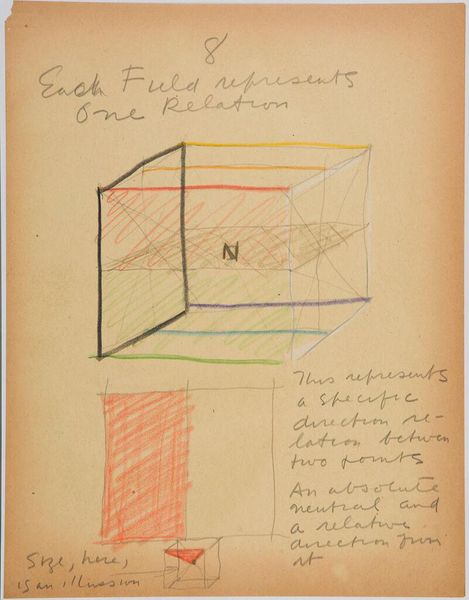 8
Each Field represents
One Relation
N
This represents
a specific
direction re-
lation between
two points
An absolute
neutral and
a relative
direction from
it
Size, here,
is an illusion